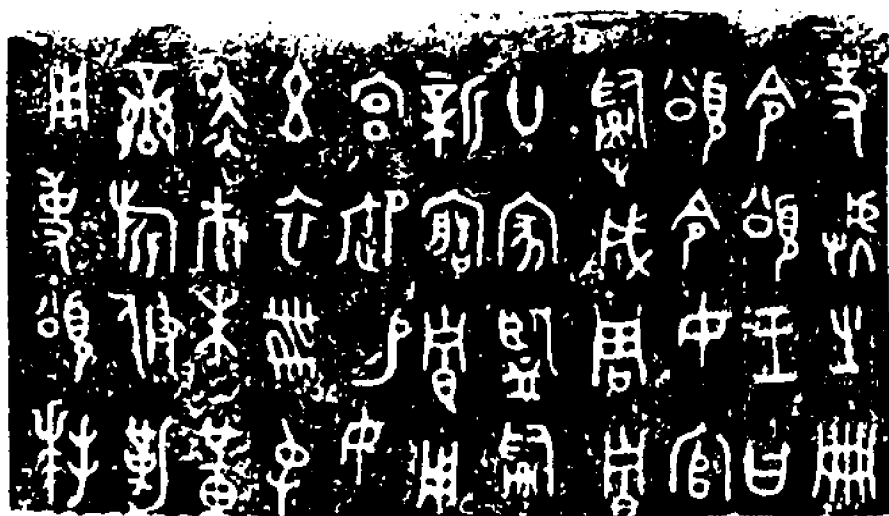 史虢生冊
令頌王曰
頌令女官
嗣成周貯
廿家監嗣
新造貯用
宮御易女
玄衣黹屯
赤巿朱黃
䜌旂攸勒
用事頌拜